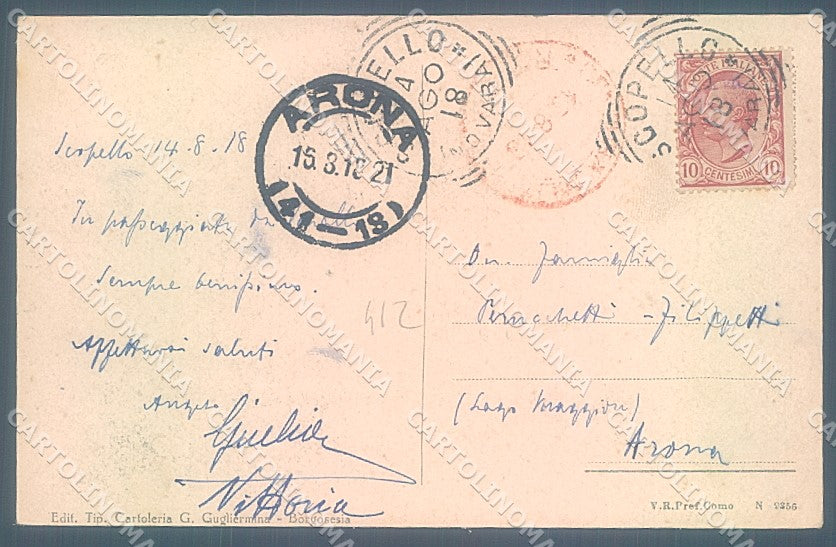 SCOPELLO
AGO
18
(NOVARA)
SCOPELLO
18
(NOVARA)
POSTE ITALIANE
10 CENTESIMI 10
ARONA
15.8.18 21
(41-18)
Scopello 14-8-18
In passeggiata da
sempre benissimo.
Affettuosi saluti
Angelo
Giulia
Vittoria
412
Famiglia
- Filippetti
(Lago Maggiore)
Arona
Edit. Tip. Cartoleria G. Gugliermina - Borgosesia
V.R.Pref.Como N 2356
CARTOLINOMANIA